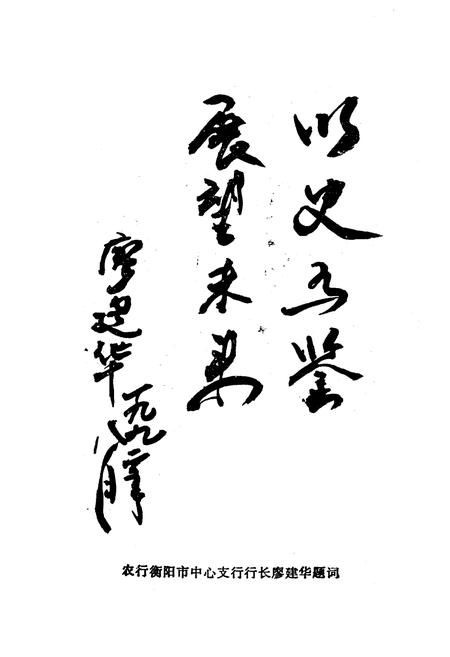 以史为鉴
展望未来
廖建华
一九九二年
八月
农行衡阳市中心支行行长廖建华题词